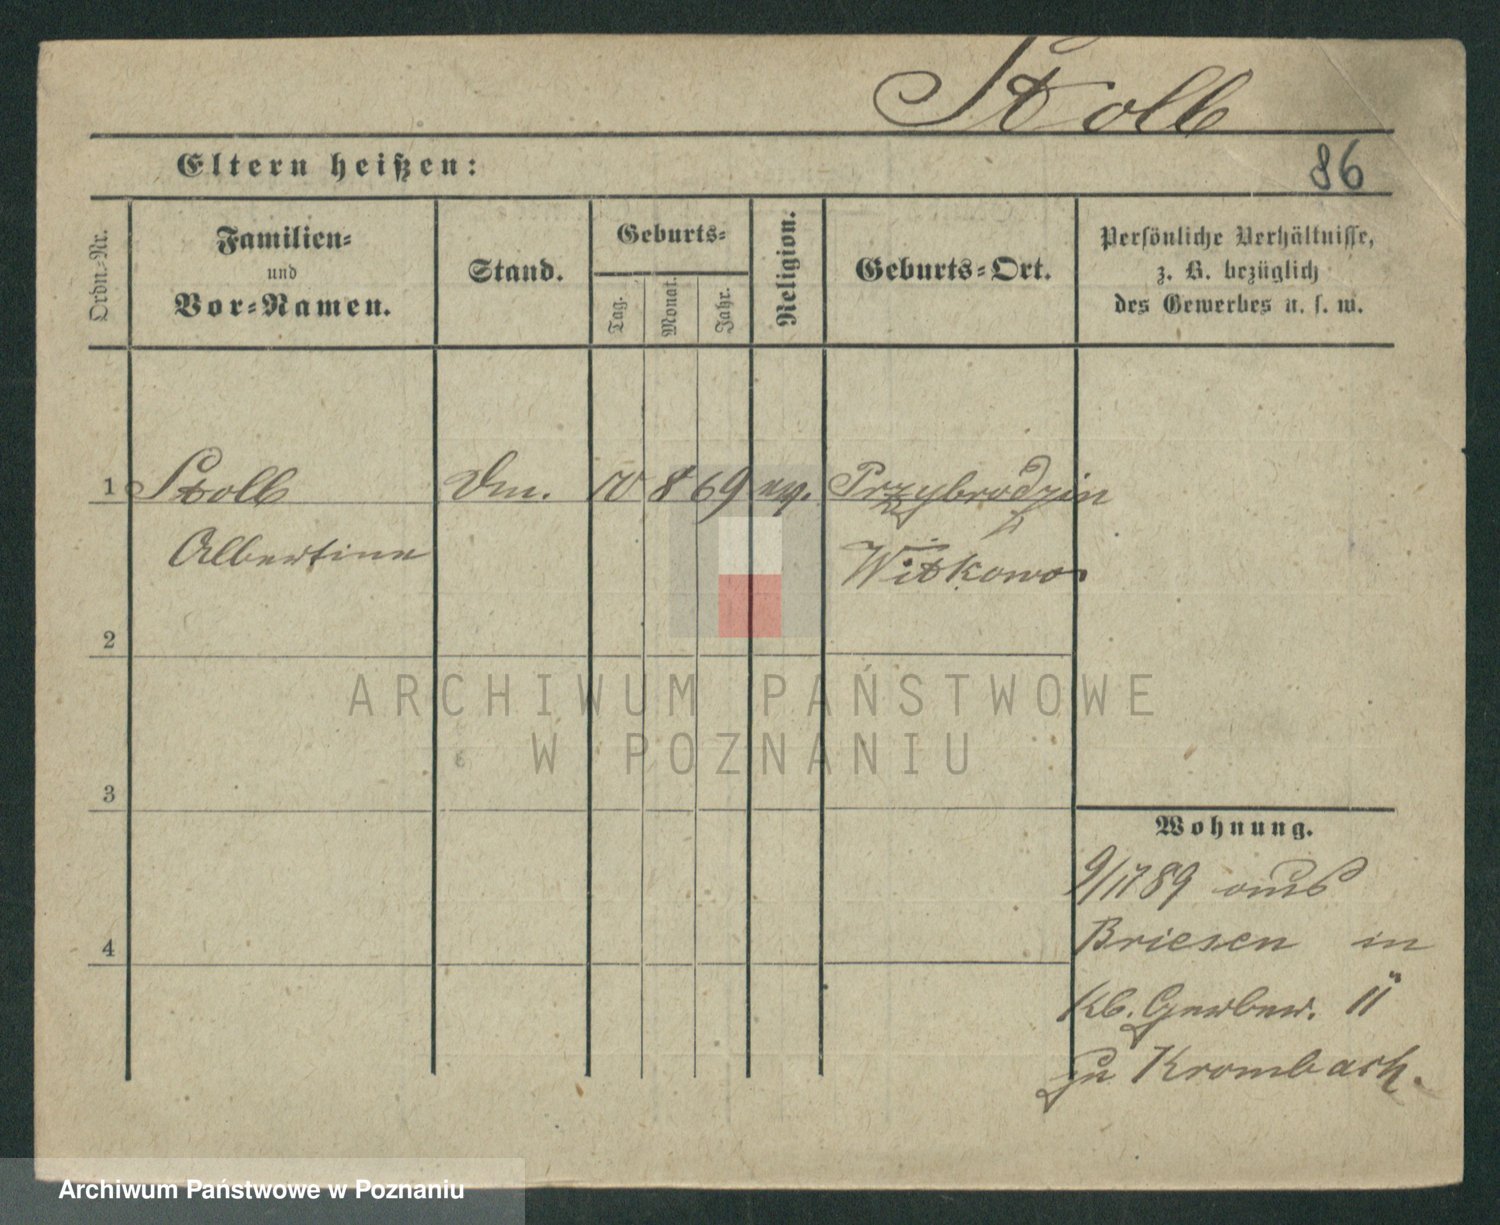 Stolb
Eltern heißen:
86
Ordn.-Nr.
Familien-
und
Vor-Namen.
Stand.
Geburts-
Tag.
Monat.
Jahr.
Religion.
Geburts-Ort.
Persönliche Verhältnisse,
z. B. bezüglich
des Gewerbes u. s. w.
1 Stolb 8 69 Przybrodzin
Albertine Witkowo
2
3
4
Wohnung.
9/11 89 aus
Briesen in
Kl. Gerber. 11
zu Krombach.
ARCHIWUM PAŃSTWOWE
W POZNANIU
Archiwum Państwowe w Poznaniu